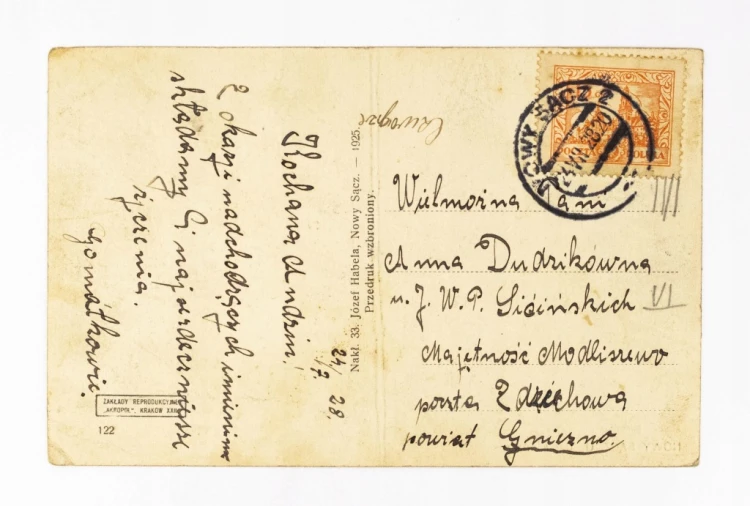 24/7. 28.
Kochana Andziu!
Z okazji nadchodzących imienin
składamy Ci najserdeczniejsze
życzenia.
Gomółkowie.
ZAKŁADY REPRODUKCYJNE
„AKROPOL”, KRAKÓW XXII
122
Nakł. 33. Józef Habela, Nowy Sącz. — 1925.
Przedruk wzbroniony.
NOWY SĄCZ 2
24 VII 28 20
Wielmożna Pani
Anna Dudzikówna
u J. W. P. Sicińskich
Majętność Modliszewo
poczta Zdziechowa
powiat Gniezno.
VI